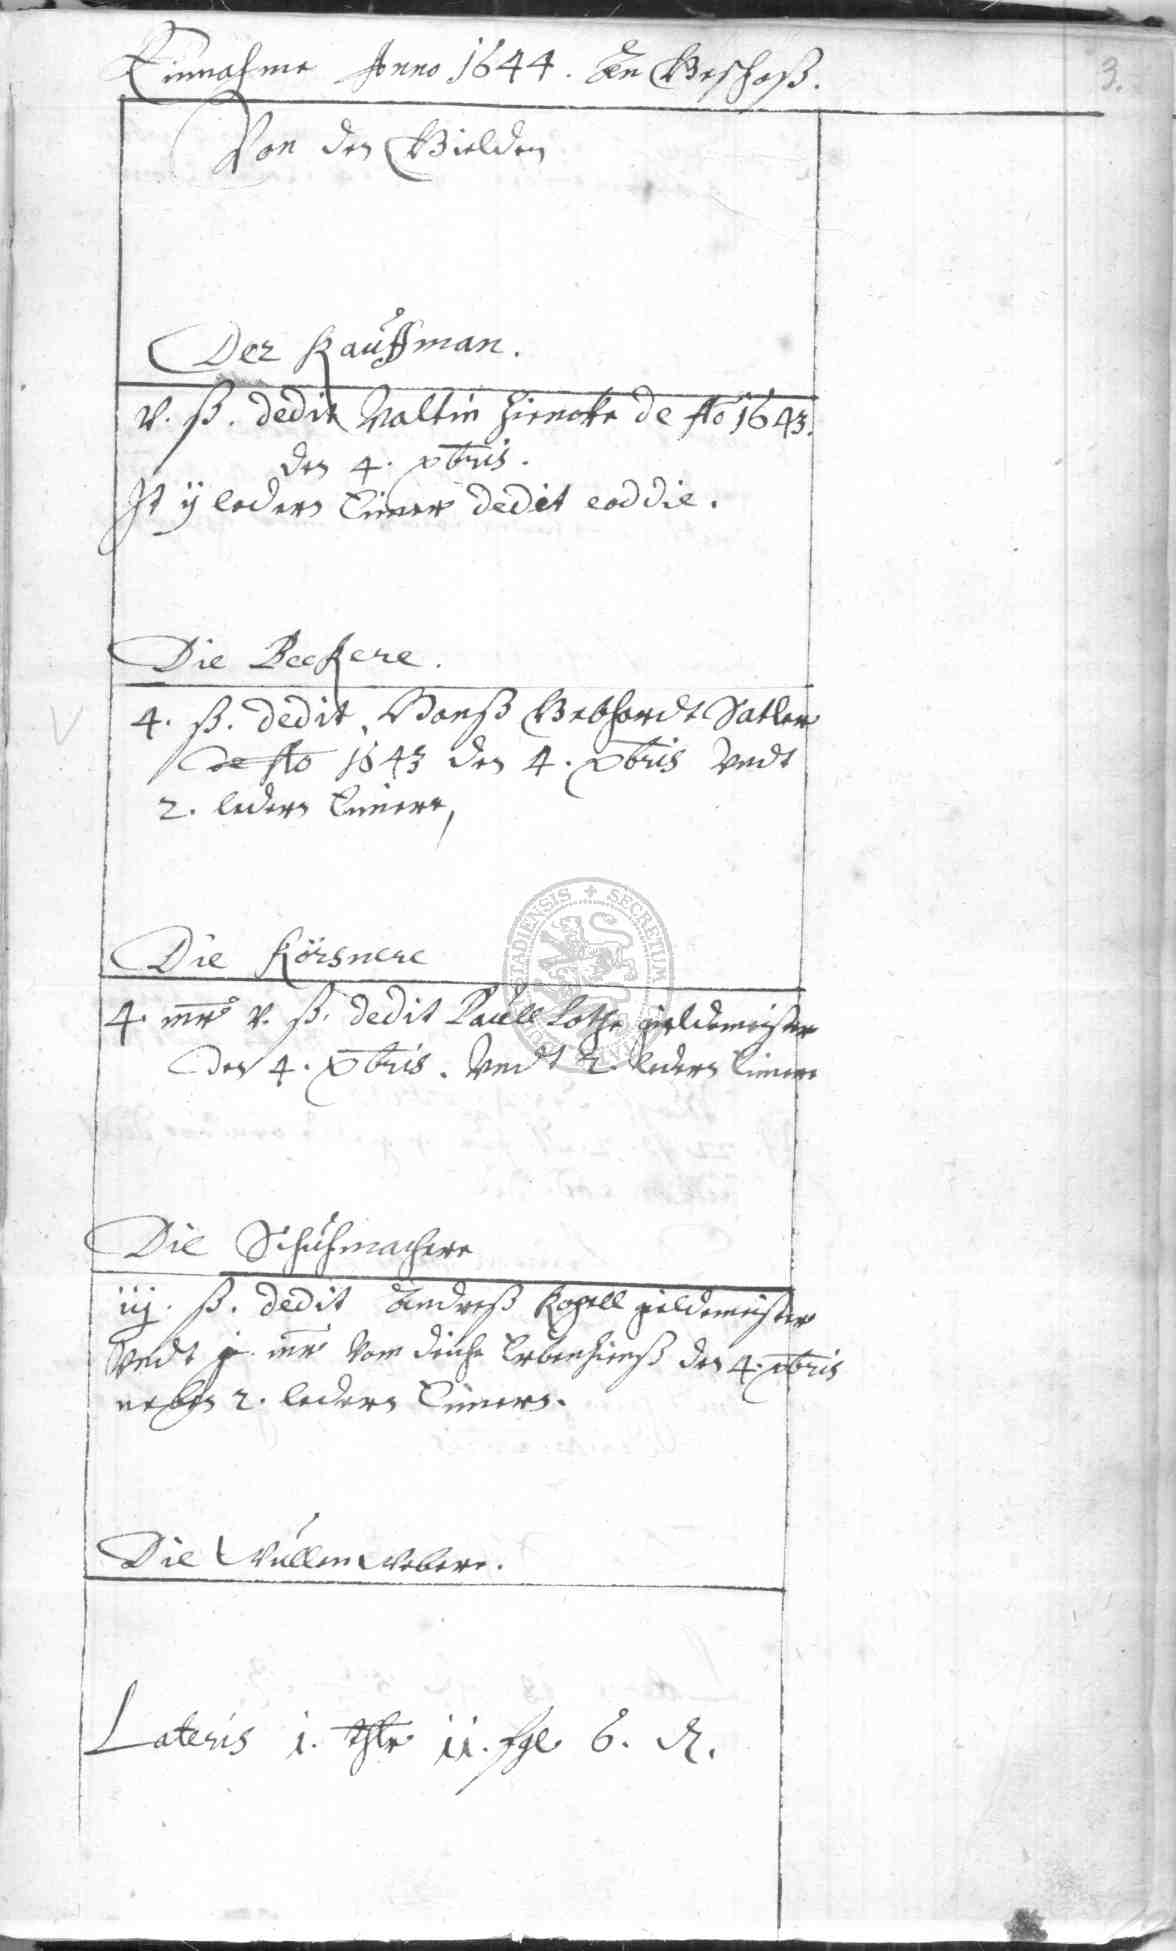 Einnahme Anno 1644. An Geschoß.
3.
Von den Gielden
Der Kauffman.
v. ß. dedit Valtin Hiencke de Ao 1643.
den 4. xbris.
It ij ledern Eimer dedit eod die.
Die Beckere.
4. ß. dedit Hanß Gebhardt Satler
de Ao 1643 den 4. xbris Vndt
2. ledern Eimere,
Die Körsnere
4. mr v. ß. dedit Paull Lothe gieldemeister
den 4. xbris. Vndt 2. ledern Eimere
Die Schuhmachere
iiij. ß. dedit Andreß Kogell gieldemeister
Vndt j. mr Vom Teiche Erbenzienß den 4. xbris
neben 2. ledern Eimern.
Die Wullen Webere.
Lateris i. thlr ii. sgl 6. d.
SECRETUM